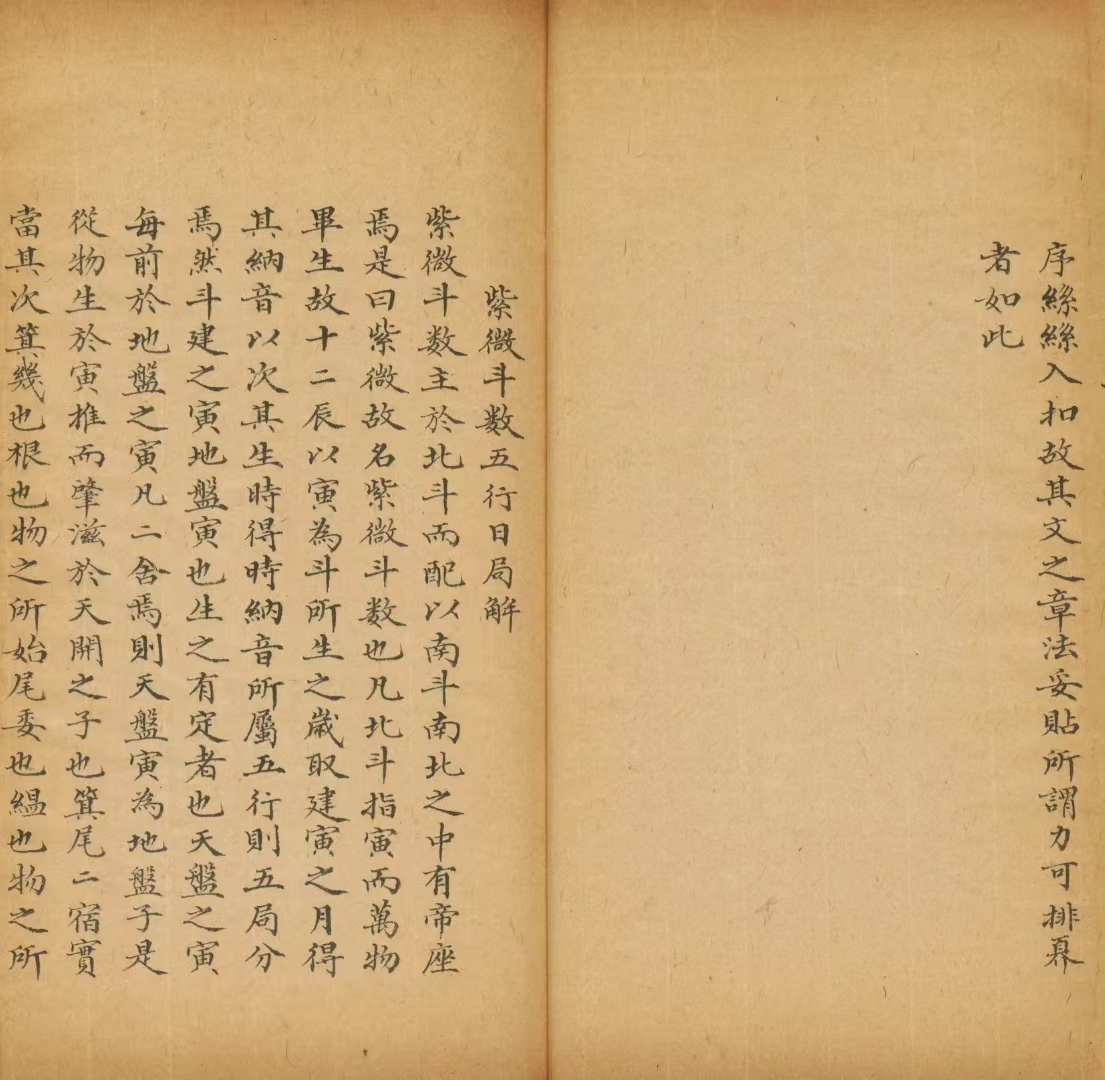 序絲絲入扣故其文之章法妥貼所謂力可排奡
者如此
紫微斗数五行日局解
紫微斗数主於北斗而配以南斗南北之中有帝座
焉是曰紫微故名紫微斗数也凡北斗指寅而萬物
畢生故十二辰以寅為斗所生之歲取建寅之月得
其納音以次其生時得時納音所屬五行則五局分
焉然斗建之寅地盤寅也生之有定者也天盤之寅
每前於地盤之寅凡二舍焉則天盤寅為地盤子是
從物生於寅推而肇滋於天開之子也箕尾二宿實
當其次箕幾也根也物之所始尾委也緼也物之所